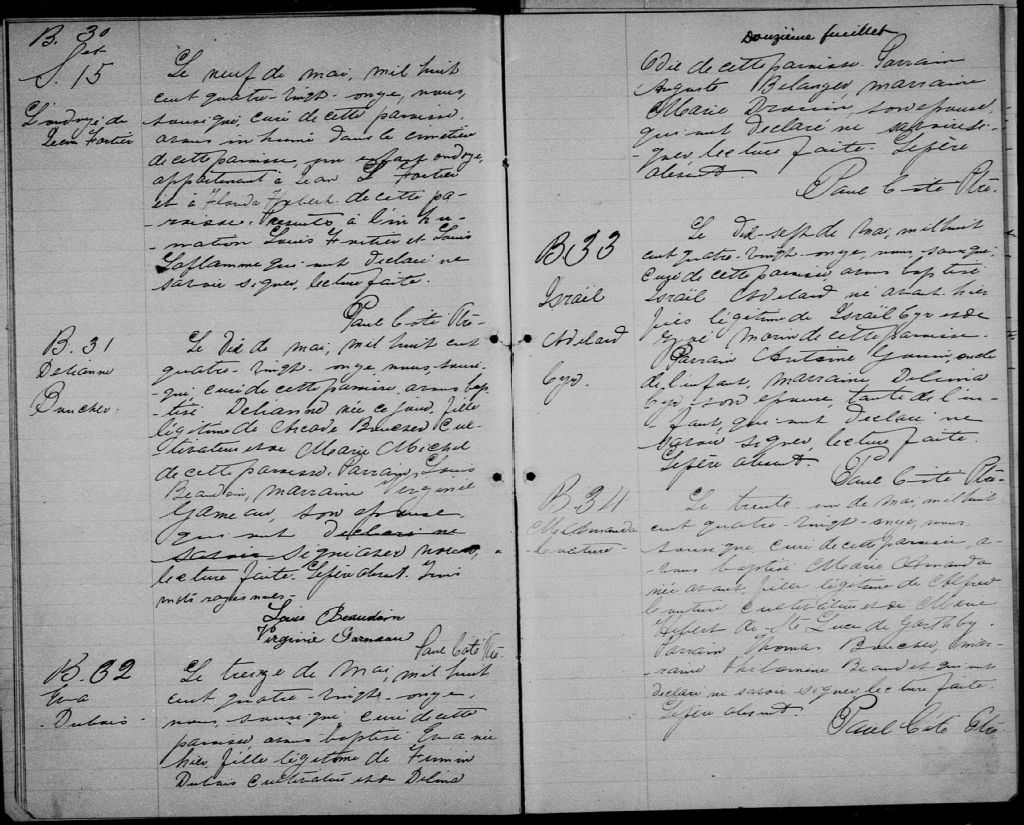 B. 30
et
S. 15
L'ondoyé de
Léon Fortier
Le neuf de mai, mil huit
cent quatre-vingt-onze, nous,
soussigné, curé de cette paroisse
avons inhumé dans le cimetière
de cette paroisse, un enfant ondoyé,
appartenant à Léon Fortier
et à Florida Hébert de cette pa-
-roisse. Présents à l'inhu-
-mation Louis Fortier et Louis
Laflamme qui ont déclaré ne
savoir signer, lecture faite.
Paul Coté Ptre
B. 31
Delianne
Boucher.
Le dix de mai, mil huit cent
quatre-vingt-onze, nous, sous-
-signé, curé de cette paroisse, avons bap-
-tisé Delianne née ce jour, fille
légitime de Arcade Boucher cul-
-tivateur et de Marie Michel
de cette paroisse. Parrain, Louis
Beaudoin, marraine Virginie
Garneau, son épouse,
qui ont declaré ne
savoir signé avec nous,
lecture faite. Le père absent. Trois
mots rayés nuls.-
Louis Beaudoin
Virginie Garneau
Paul Coté Ptre
B. 32
Eva
Dubois
Le treize de Mai, mil huit
cent quatre-vingt-onze,
nous, soussigné, curé de cette
paroisse, avons baptisé Eva née
hier, fille légitime de Firmin
Dubois cultivateur et de Delina
Douzième feuillet
de cette paroisse. Parrain
Auguste Belanger, marraine
Marie Drouin, son épouse,
qui ont déclaré ne savoir si-
-gner, lecture faite. Le père
absent.
Paul Coté Ptre.
B 33
Israël
Adelard
Cyr.
Le dix-sept de Mai, mil huit
cent quatre-vingt-onze, nous, soussigné,
curé de cette paroisse avons baptisé
Israël Adelard né avant-hier
fils légitime de Israël Cyr et de
Zoé Morin de cette paroisse.
Parrain Antoine oncle
de l'enfant, marraine Delima
Cyr, son épouse, tante de l'en-
-fant, qui ont declaré ne
savoir signer, lecture faite.
Le père absent.
Paul Coté Ptre
B. 34
M. Amanda
Couture
Le trente-un de Mai, mil huit
cent quatre-vingt-onze, nous
soussigné, curé de cette paroisse, a-
-vons baptisé Marie Amanda
née avant, fille légitime de Alfred
Couture cultivateur et de Marie
Hébert de St Luce de Garthby.
Parrain Thomas Boucher, mar-
raine Philomène Beaudet qui ont
declaré ne savoir signer, lecture faite.
Le père absent.
Paul Coté Ptre